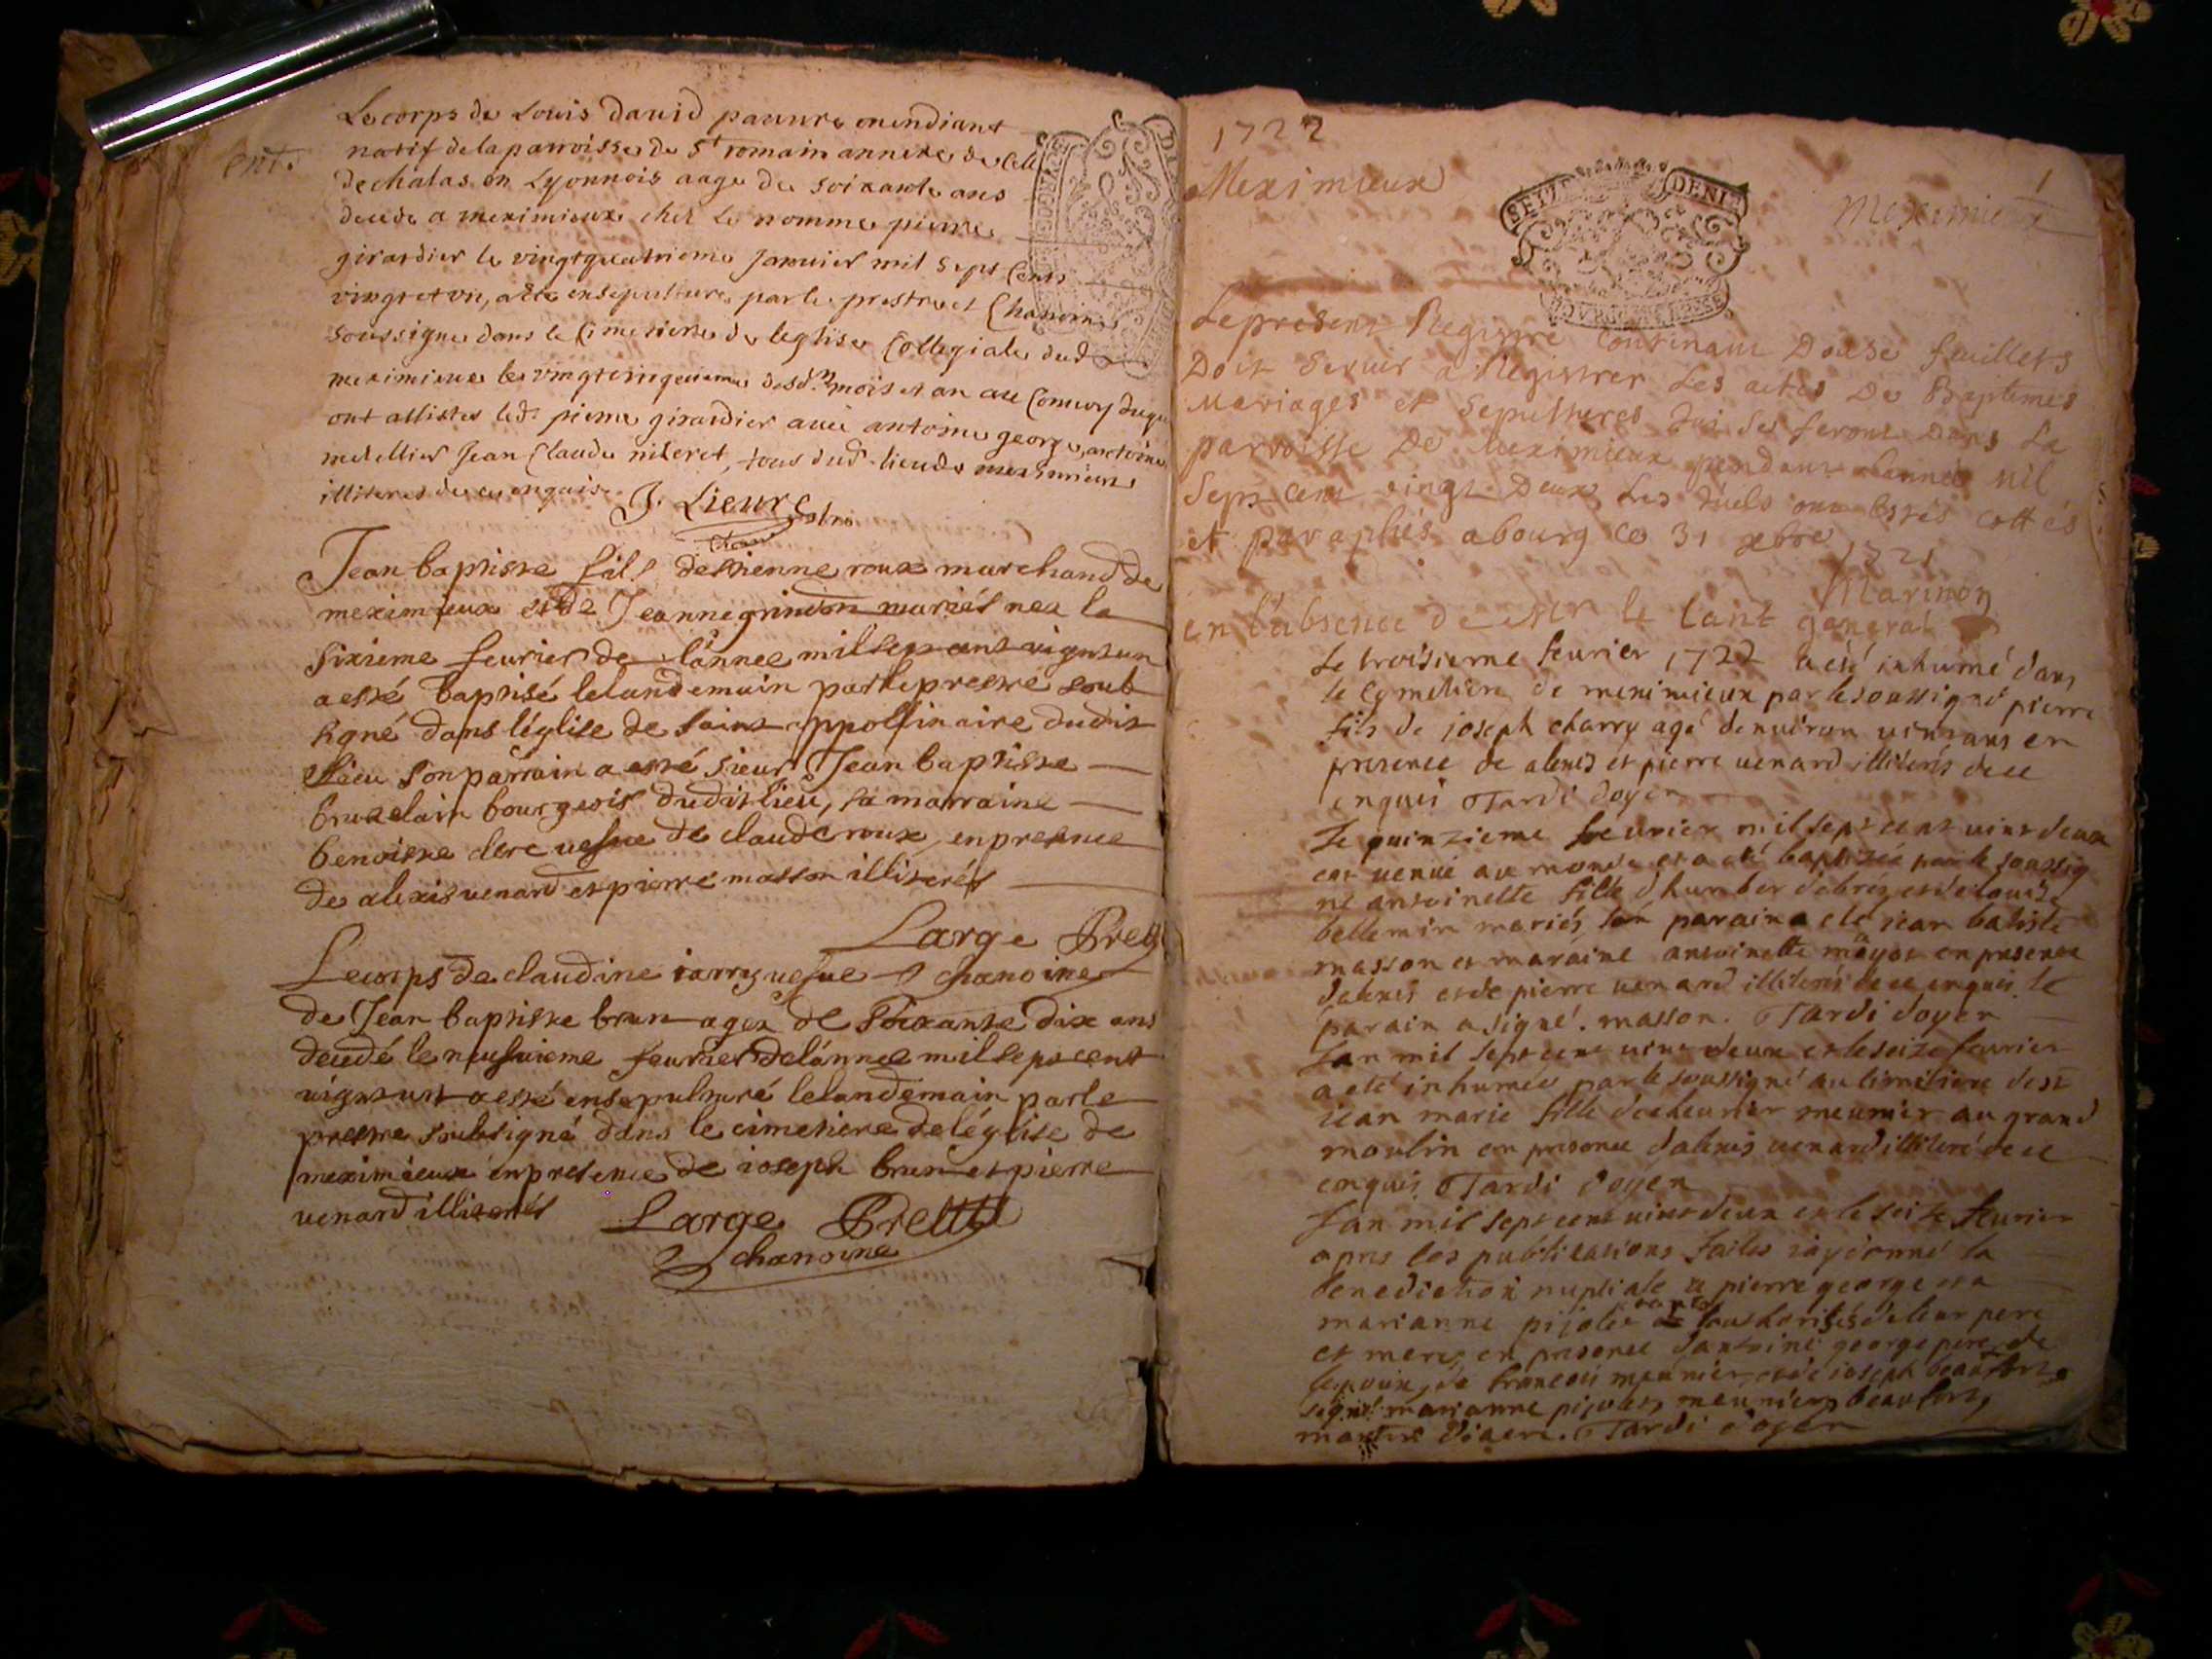 ent.
Le corps de Louis david pauure mendiant
natif de la parroisse de St romain annexe de cell
de chalas en Lyonnois aage de soixante ans
decede a meximieux chez le nomme pierre
girardier le vingtquatrieme Januier mil sept cents
vingt et vn, a este ensepulture par le prestre et Chanoine
soussigne dans le Cimetiere de leglise Collegiale dud
meximieux le vingtcinquieme desd. mois et an au Conuoy duquel
ont assistes led. pierre girardier auec antoine george, antoine
metellier Jean Claude nileret, tous dud. lieu de meximieux
illiteres de ce enquis.
J. Lieure
Jean baptiste fils destienne roux marchand de
meximieux et de Jeanne grindon mariés nez le
sixieme feurier de lannee mil sept cent vignt un
a esté baptisé lelandemain par le prestre soub
signé dans léglise de saint appollinaire dudit
lieu son parrain a esté sieur Jean baptiste
bruxelain bourgeois dudit lieu, sa marraine
benoiste clerc vefue de claude roux, en presence
de alexis uenard et pierre masson illiterés
Large Prest
chanoine
Le corps de claudine iarry uefue
de Jean baptiste brun agez de soixante dix ans
decedé le neufuieme feurier de lánnee mil sept cent
vignt un a esté ensepulturé lelandemain par le
prestre soubsigné dans le cimetiere de léglise de
meximieux en presence de ioseph brun et pierre
uenard illiterés
Large Prestre
chanoine
1722
Meximieux
1
Meximieux
SEIZE DENIE
Le present Registre contenant Douse feuillets
Doit seruir a Registrer Les actes De Baptemes
Mariages et Sepultures qui se feront Dans La
parroisse De Meximieux pendant lannée mil
Sept cent vingt Deux Les quels ont estés cottés
et paraphés a bourg ce 31 xbre 1721
Marinon
en l'absence de Mr le lant general
Le troisieme feurier 1722 a été inhumé dans
le cymetiere de meximieux par le soussigné pierre
fils de joseph charry agé denuiron uint ans en
presence de alexis et pierre uenard illiterés de ce
enquis Tardi doyen
Le quinzieme feurier mil sept cent uint deux
est uenüe au monde et a eté baptizée par le soussig
né antoinette fille d'humber debréz et de louise
bellemin mariés, son parain a eté jean batiste
masson et maraine antoinette mayot en presence
dalexis et de pierre uenard illiterés de ce enquis le
parain a signé. masson. Tardi doyen
Lan mil sept cent uint deux et le seize feurier
a eté inhumée par le soussigné au cimetiere de st
jean marie fille meunier au grand
moulin en presence dalexis uenard illiteré de ce
enquis Tardi doyen
Lan mil sept cent uint deux et le seize feurier
apres les publications faites jay donné la
benediction nuptiale a pierre george et a
marianne pijolet authorisés de leur pere
et mere, en presence dantoine george pere de
lepoux, de francois meunier, et de ioseph beaufort
signé marianne pijolet, meunier, beaufort,
Tardi doyen